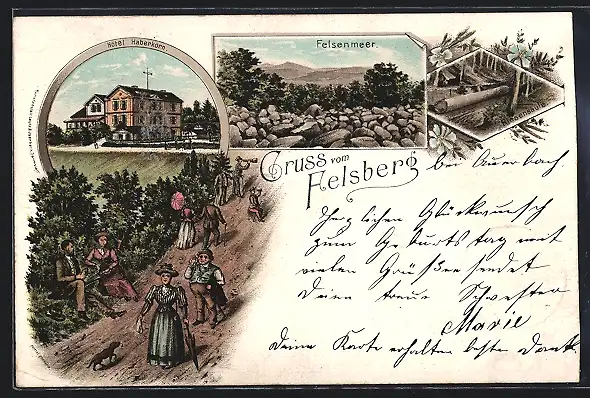 Hôtel Haberkorn.
Felsenmeer.
Gruss vom
Felsberg
bei Auerbach.
Herzlichen Glückwunsch
zum Geburtstag mit
vielen Grüßen sendet
Deine treue Schwester
Marie
Deine Karte erhalten besten Dank